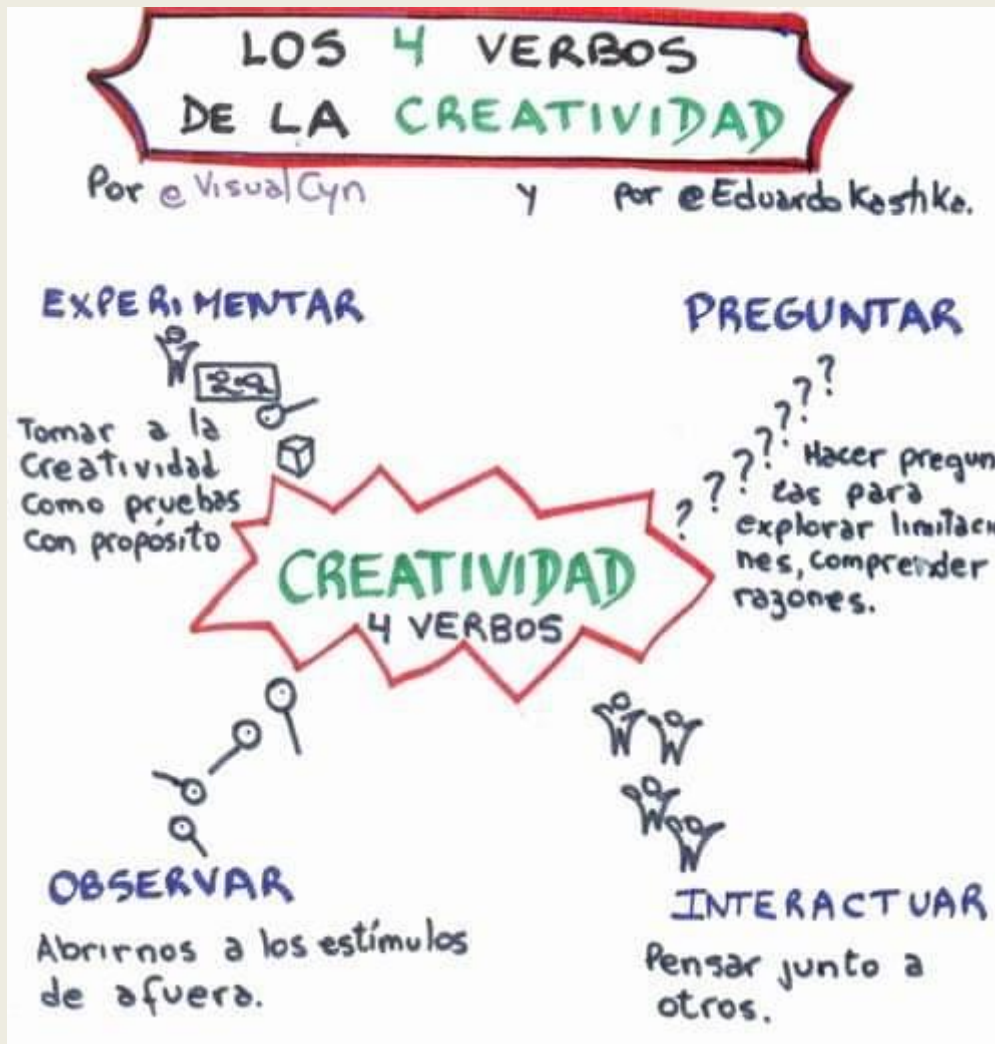 LOS 4 VERBOS
DE LA CREATIVIDAD
Por @VisualCyn y por @EduardoKastika.
EXPERIMENTAR
Tomar a la
Creatividad
Como pruebas
con propósito
PREGUNTAR
? ? ? ? ? ? ?
Hacer pregun
tas para
explorar limitacio
nes, comprender
razones.
CREATIVIDAD
4 VERBOS
OBSERVAR
Abrirnos a los estímulos
de afuera.
INTERACTUAR
Pensar junto a
otros.